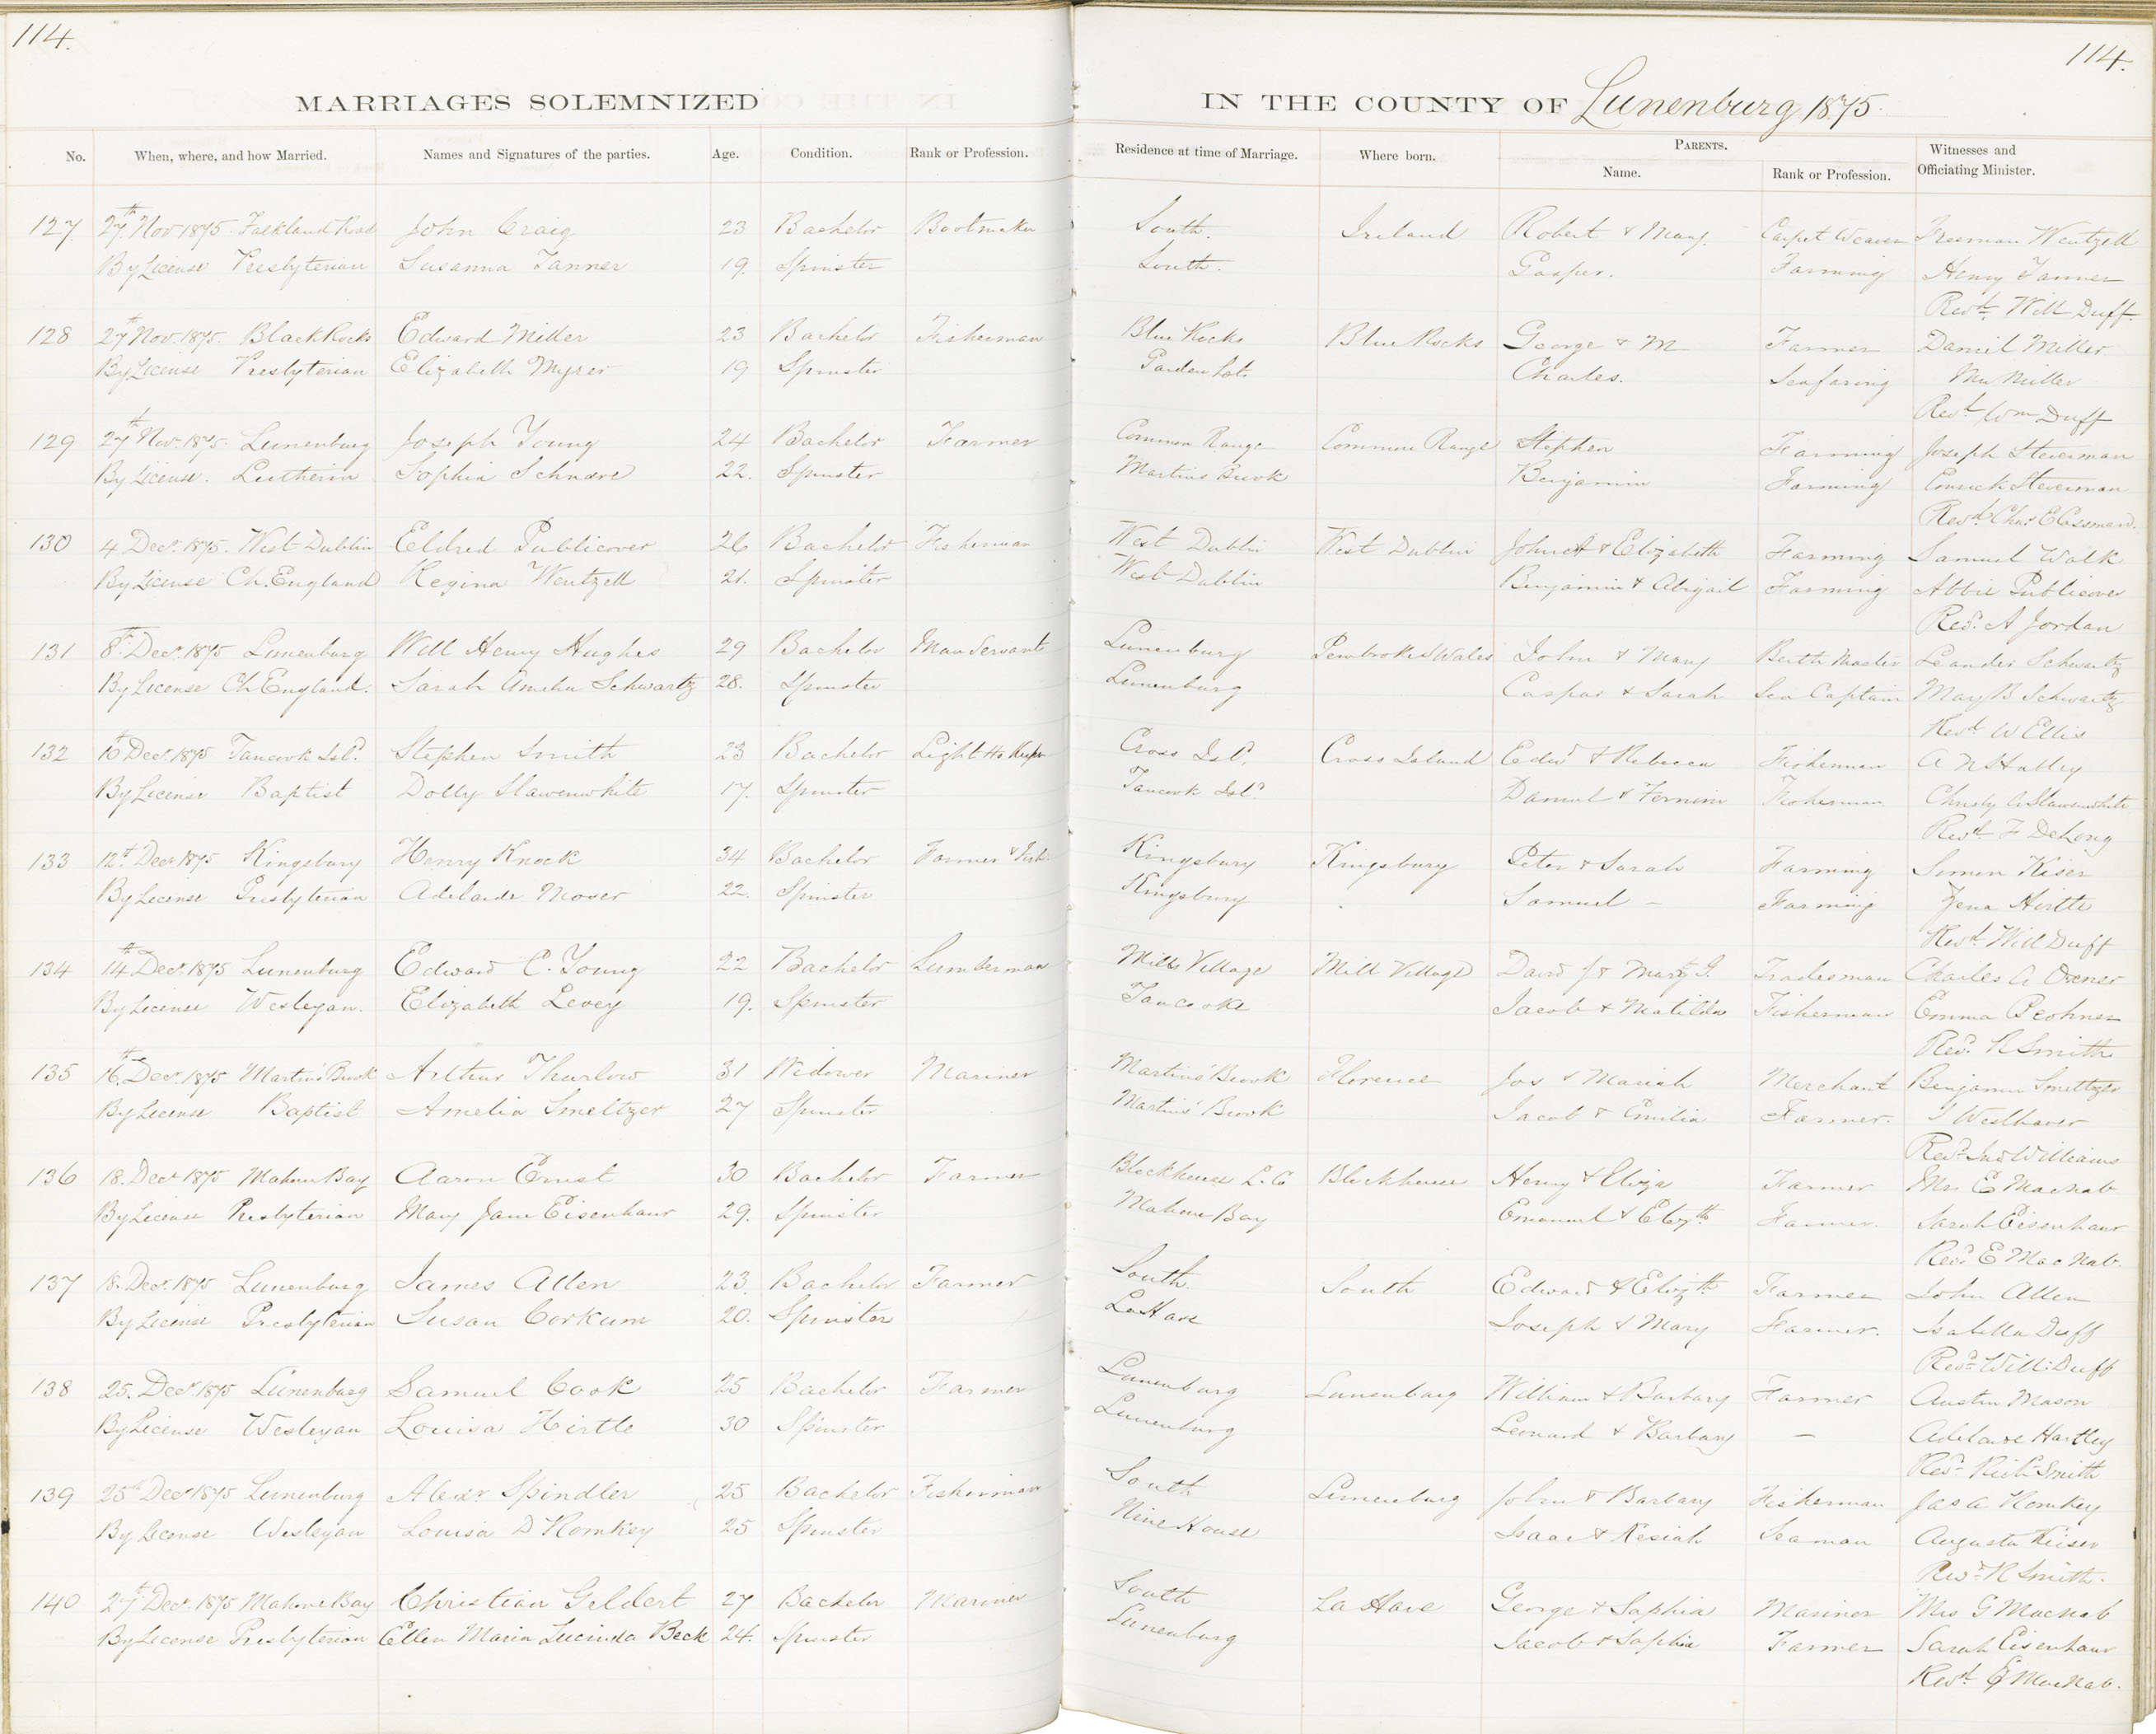 114.
114.
MARRIAGES SOLEMNIZED
IN THE COUNTY OF Lunenburg 1875.
No. When, where, and how Married. Names and Signatures of the parties. Age. Condition. Rank or Profession. Residence at time of Marriage. Where born. PARENTS. Name. Rank or Profession. Witnesses and Officiating Minister.
127 27th Nov 1875 Falkland Road John Craig 23 Bachelor Bootmaker South. Ireland Robert & Mary Carpet Weaver Freeman Wentzell
By License Presbyterian Susanna Tanner 19. Spinster South. Gasper. Farming Henry Tanner
Revd. Will Duff.
128 27th Nov. 1875. Black Rocks Edward Miller 23 Bachelor Fisherman Blue Rocks Blue Rocks George & M Farmer Daniel Miller
By License Presbyterian Elizabeth Myrer 19 Spinster Garden Lots Charles. Seafaring Miller
Revd. Wm Duff
129 27th Nov. 1875. Lunenburg Joseph Young 24 Bachelor Farmer Common Range Common Range Stephen Farming Joseph Steverman
By License. Lutherin Sophia Schnare 22. Spinster Martins Brook Benjamin Farming Steverman
Revd. Chas E Cossmand.
130 4 Decr. 1875. West Dublin Eldred Publicover 26 Bachelor Fisherman West Dublin West Dublin John A & Elizabeth Farming Samuel Wolk
By License Ch. England Regina Wentzell 21. Spinster West Dublin Benjamin & Abigail Farming Abbie Publicover
Revd. A Jordan
131 8th Decr. 1875 Lunenburg Will Henry Hughes 29 Bachelor Man Servant Lunenburg Pembroke S Wales John & Mary Berth Master Leander Schwartz
By License Ch England. Sarah Amelia Schwartz 28. Spinster Lunenburg Caspar & Sarah Sea Captain Mary B Schwartz
Revd W Ellis
132 10 Decr. 1875 Tancook Isld. Stephen Smith 23 Bachelor Light Ho Keeper Cross Isld. Cross Island Edwd & Rebecca Fisherman
By License Baptist Dolly Slawenwhite 17. Spinster Tancook Isld. Daniel & Fisherman Christy A Slawenwhite
Revd. F DeLong
133 12th Decr 1875 Kingsbury Henry Knock 34 Bachelor Farmer & Fish Kingsbury Kingsbury Peter & Sarah Farming Simon Kiser
By License Presbyterian Adelaide Moser 22. Spinster Kingsbury Samuel - Farming Zena Hirtle
Revd. Will Duff
134 14th Decr. 1875 Lunenburg Edward C. Young 22 Bachelor Lumberman Mills Village Mill Village David J & Mary G. Tradesman Charles A Oxner
By License Wesleyan. Elizabeth Levey 19. Spinster Tancooke Jacob & Matilda Fisherman Emma
Revd. R Smith
135 16th Decr. 1875 Martins' Brook Arthur Thurlow 31 Widower Mariner Martins' Brook Florence Jos & Mariah Merchant Benjamin Smeltzer
By License Baptist Amelia Smeltzer 27 Spinster Martins' Brook Jacob & Emilia Farmer. Westhaver
Revd. Williams
136 18. Decr 1875 Mahone Bay Aaron Ernst 30 Bachelor Farmer Blockhouse L. C Blockhouse Henry & Eliza Farmer Mrs E MacNab
By License Presbyterian Mary Jane Eisenhaur 29. Spinster Mahone Bay Emanuel & Elizth. Farmer. Sarah Eisenhaur
Revd. E MacNab.
137 18. Decr. 1875 Lunenburg James Allen 23. Bachelor Farmer South. South Edward & Elizth Farmer John Allen
By License Presbyterian Susan Corkum 20. Spinster LaHave Joseph & Mary Farmer. Isabella Duff
Revd. Will: Duff
138 25. Decr 1875 Lunenburg Samuel Cook 25 Bachelor Farmer Lunenburg Lunenburg William & Barbary Farmer Austin Mason
By License Wesleyan Louisa Hirtle 30 Spinster Lunenburg Leonard & Barbary — Adelaide Hartley
Revd. Smith
139 25th Decr 1875 Lunenburg Alexr Spindler 25 Bachelor Fisherman South Lunenburg John & Barbary Fisherman Jas A Romkey
By License Wesleyan Louisa D Romkey 25 Spinster Nine House Isaac & Kesiah Seaman Augusta Keiser
Revd. R Smith.
140 27th Decr. 1875 Mahone Bay Christian Geldert 27 Bachelor Mariner South La Have George & Sophia Mariner Mrs G MacNab
By License Presbyterian Ellen Maria Lucinda Beck 24. Spinster Lunenburg Jacob & Sophia Farmer Sarah Eisenhaur
Revd. E MacNab.